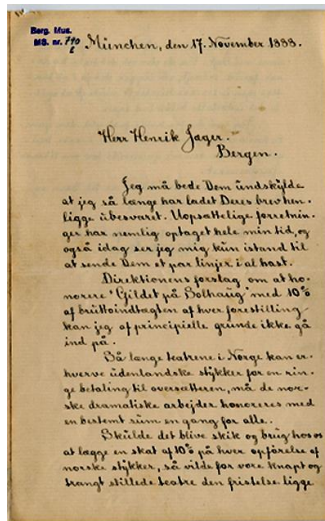 Berg. Mus.
MS. nr. 740
b
München, den 17. November 1888.
Herr Henrik Jæger.
Bergen.
Jeg må bede Dem undskylde
at jeg så længe har ladet Deres brev hen-
ligge übesvaret. Uopsættelige forretnin-
ger har nemlig optaget hele min tid, og
også idag ser jeg mig kün istand til
at sende Dem et par linjer i al hast.
Direktionens forslag om at ho-
norere "Gildet på Solhaüg" med 10%
af brüttoindtægten af hver forestilling
kan jeg af principielle grunde ikke gå
ind på.
Så længe teatrene i Norge kan er-
hverve üdenlandske stÿkker for en rin-
ge betaling til oversætteren, må de nor-
ske dramatiske arbejder honoreres med
en bestemt süm en gang for alle.
Skülde det blive skik og brüg hos os
at lægge en skat af 10% på hver opførelse af
norske stykker, så vilde for vore knapt og
trangt stillede teatre den fristelse ligge